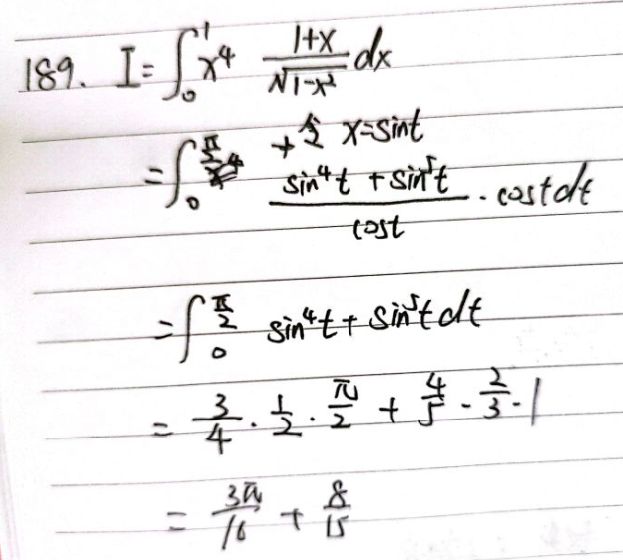 189. I = ∫₀¹ x⁴ (1+x)/√(1-x²) dx
令 x=sint
= ∫₀^(π/2) (sin⁴t + sin⁵t)/cost · costdt
= ∫₀^(π/2) sin⁴t + sin⁵t dt
= 3/4 · 1/2 · π/2 + 4/5 · 2/3 · 1
= 3π/16 + 8/15